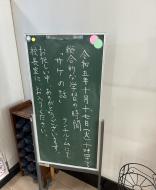 令和五年十月十七日(火)
総合的な学習の時間
「サケの話」
ランチルームにて
お忙しい中、ありがとうございます。
校長室にお入りください。